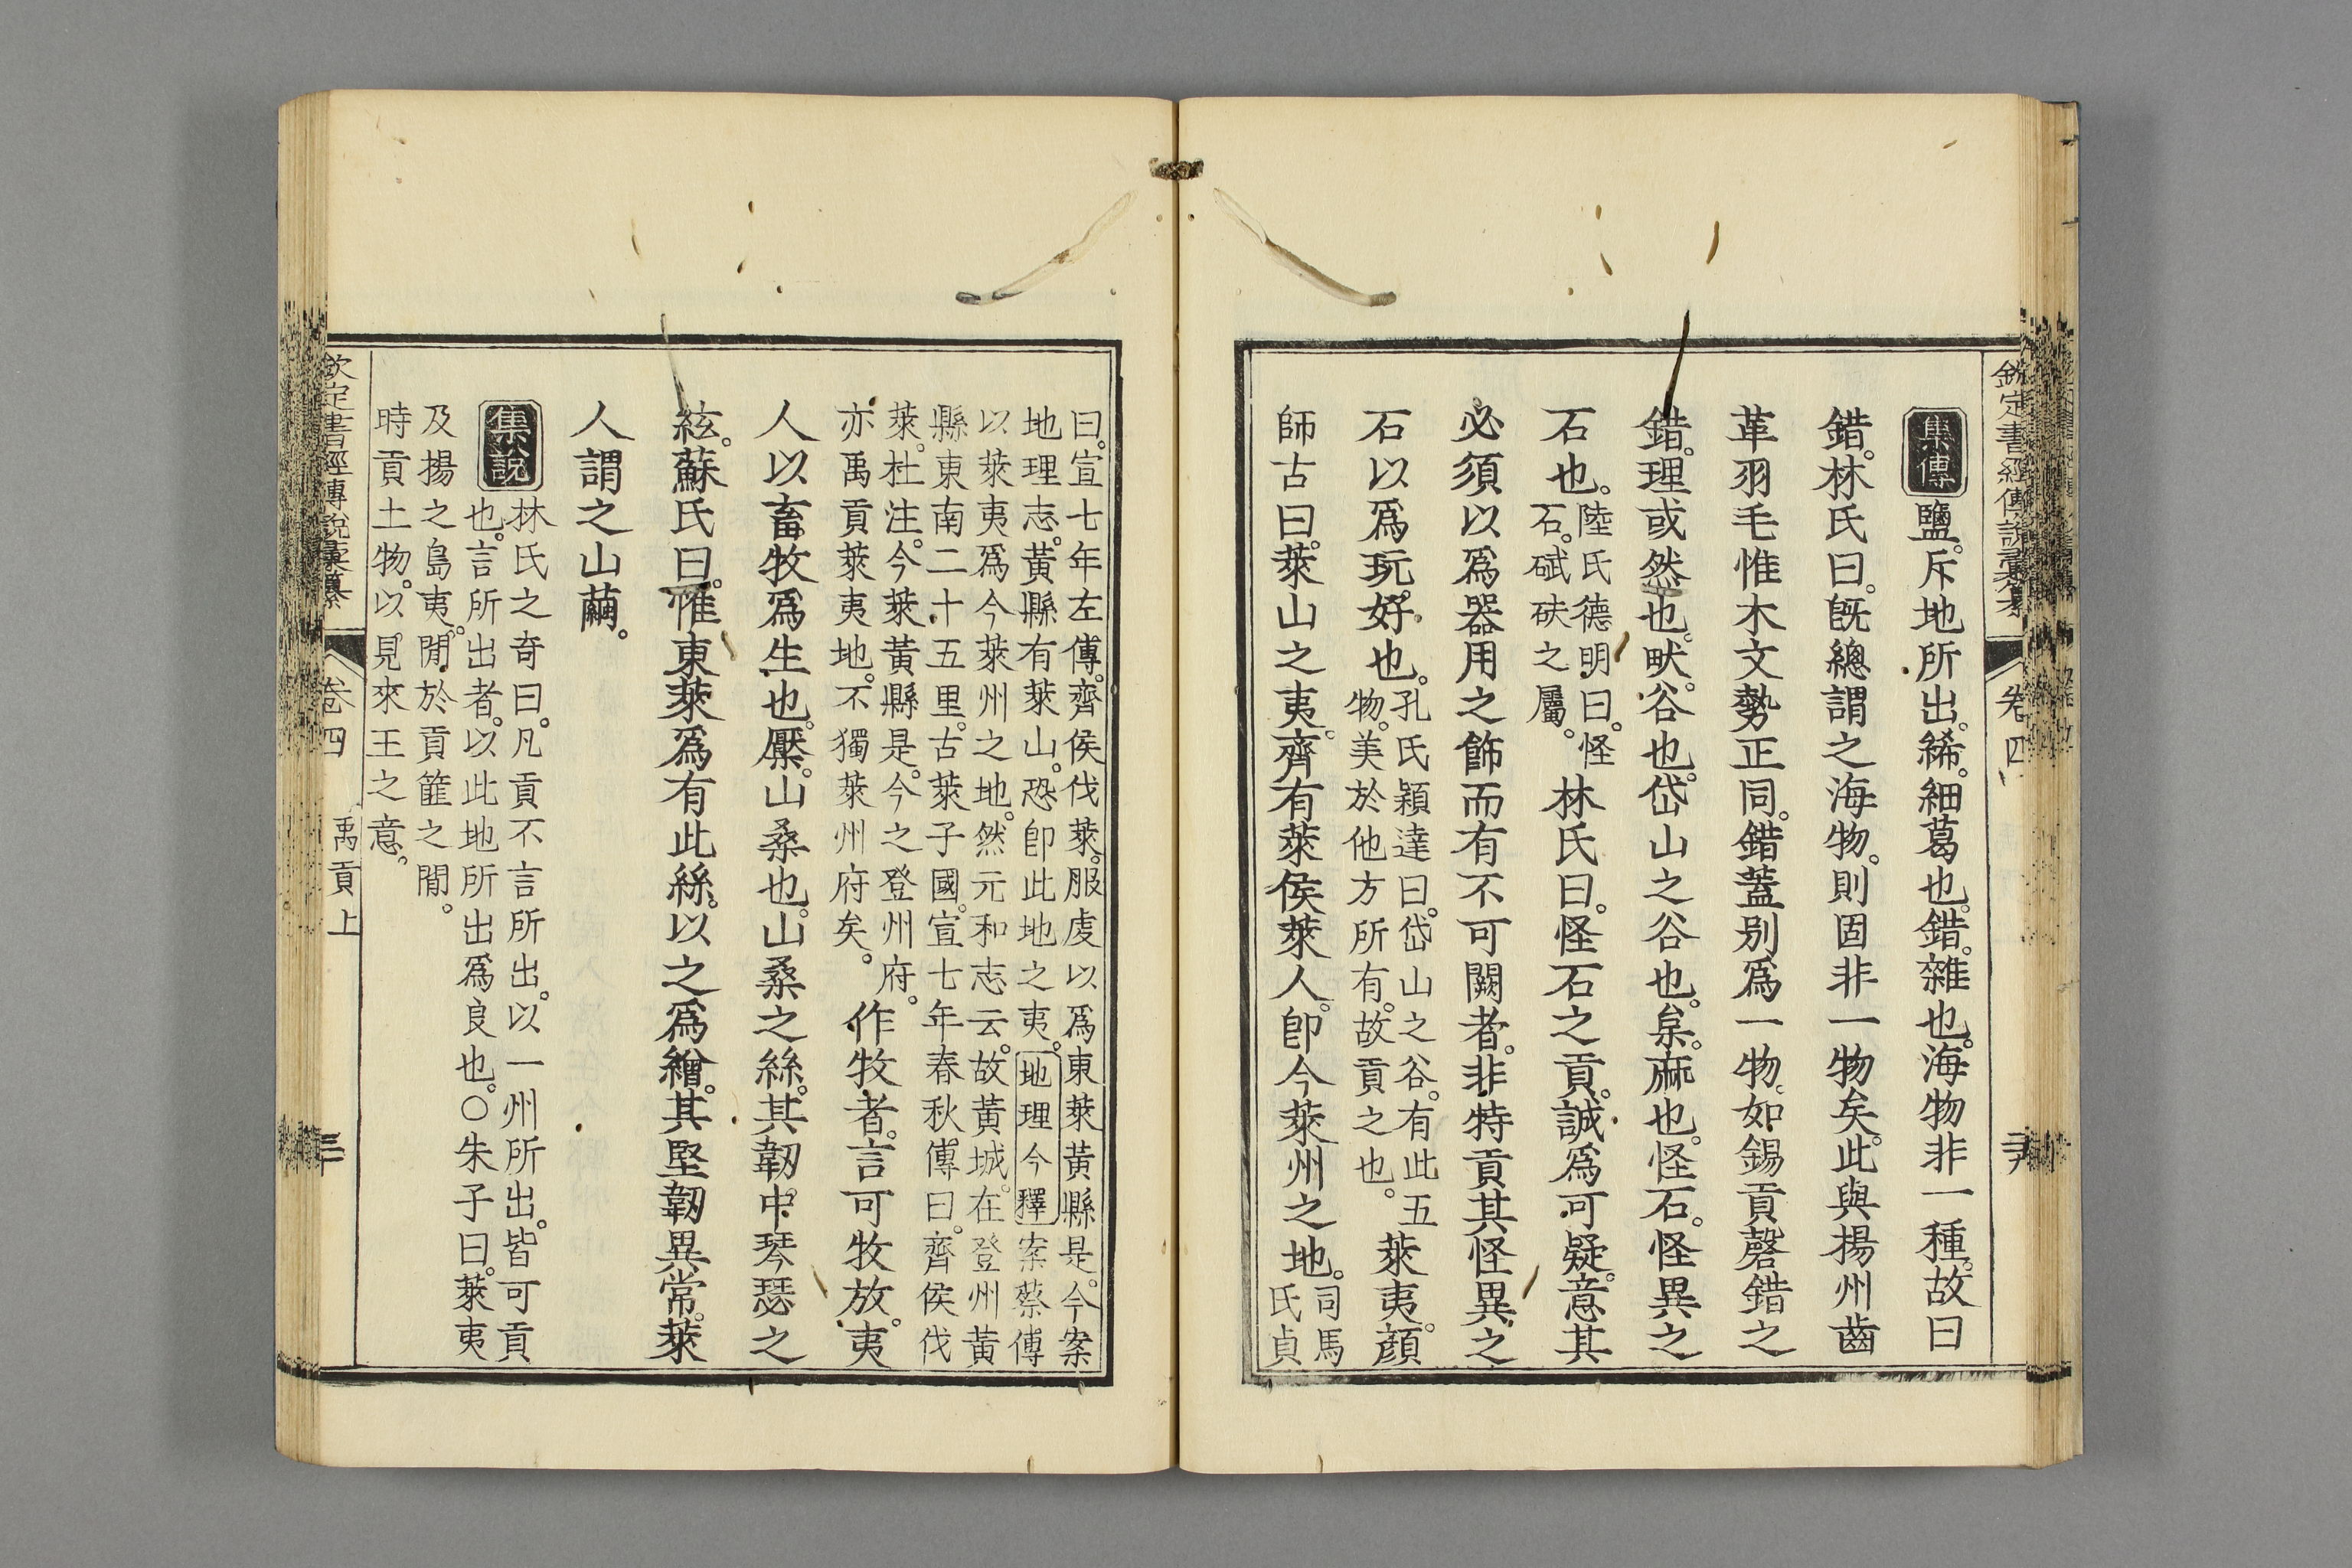 欽定書經傳說彙纂 卷四
集傳 鹽。斥地所出。絺。細葛也。錯。雜也。海物非一種。故曰
錯。林氏曰。旣總謂之海物。則固非一物矣。此與揚州齒
革羽毛惟木文勢正同。錯蓋别爲一物。如錫貢磬錯之
錯。理或然也。畎。谷也。岱山之谷也。枲。麻也。怪石。怪異之
石也。
陸氏德明曰。怪
石。碔砆之屬。
林氏曰。怪石之貢。誠爲可疑。意其
必須以爲器用之飾而有不可闕者。非特貢其怪異之
石以爲玩好也。
孔氏穎達曰。岱山之谷。有此五
物。美於他方所有。故貢之也。
萊夷。顔
師古曰。萊山之夷。齊有萊侯萊人。卽今萊州之地。
司馬
氏貞
曰。宣七年左傳。齊侯伐萊。服虔以爲東萊黃縣是。今案
地理志。黃縣有萊山。恐卽此地之夷。地理今釋 案蔡傳
以萊夷爲今萊州之地。然元和志云。故黃城。在登州黃
縣東南二十五里。古萊子國。宣七年春秋傳曰。齊侯伐
萊。杜注。今萊黃縣是。今之登州府。
亦禹貢萊夷地。不獨萊州府矣。
作牧者。言可牧放。夷
人以畜牧爲生也。檿。山桑也。山桑之絲。其韌中琴瑟之
絃。蘇氏曰。惟東萊爲有此絲。以之爲繒。其堅韌異常。萊
人謂之山繭。
集說
林氏之奇曰。凡貢不言所出。以一州所出。皆可貢
也。言所出者。以此地所出爲良也。○朱子曰。萊夷
及揚之島夷。閒於貢篚之閒。
時貢土物。以見來王之意。
欽定書經傳說彙纂 卷四 禹貢上